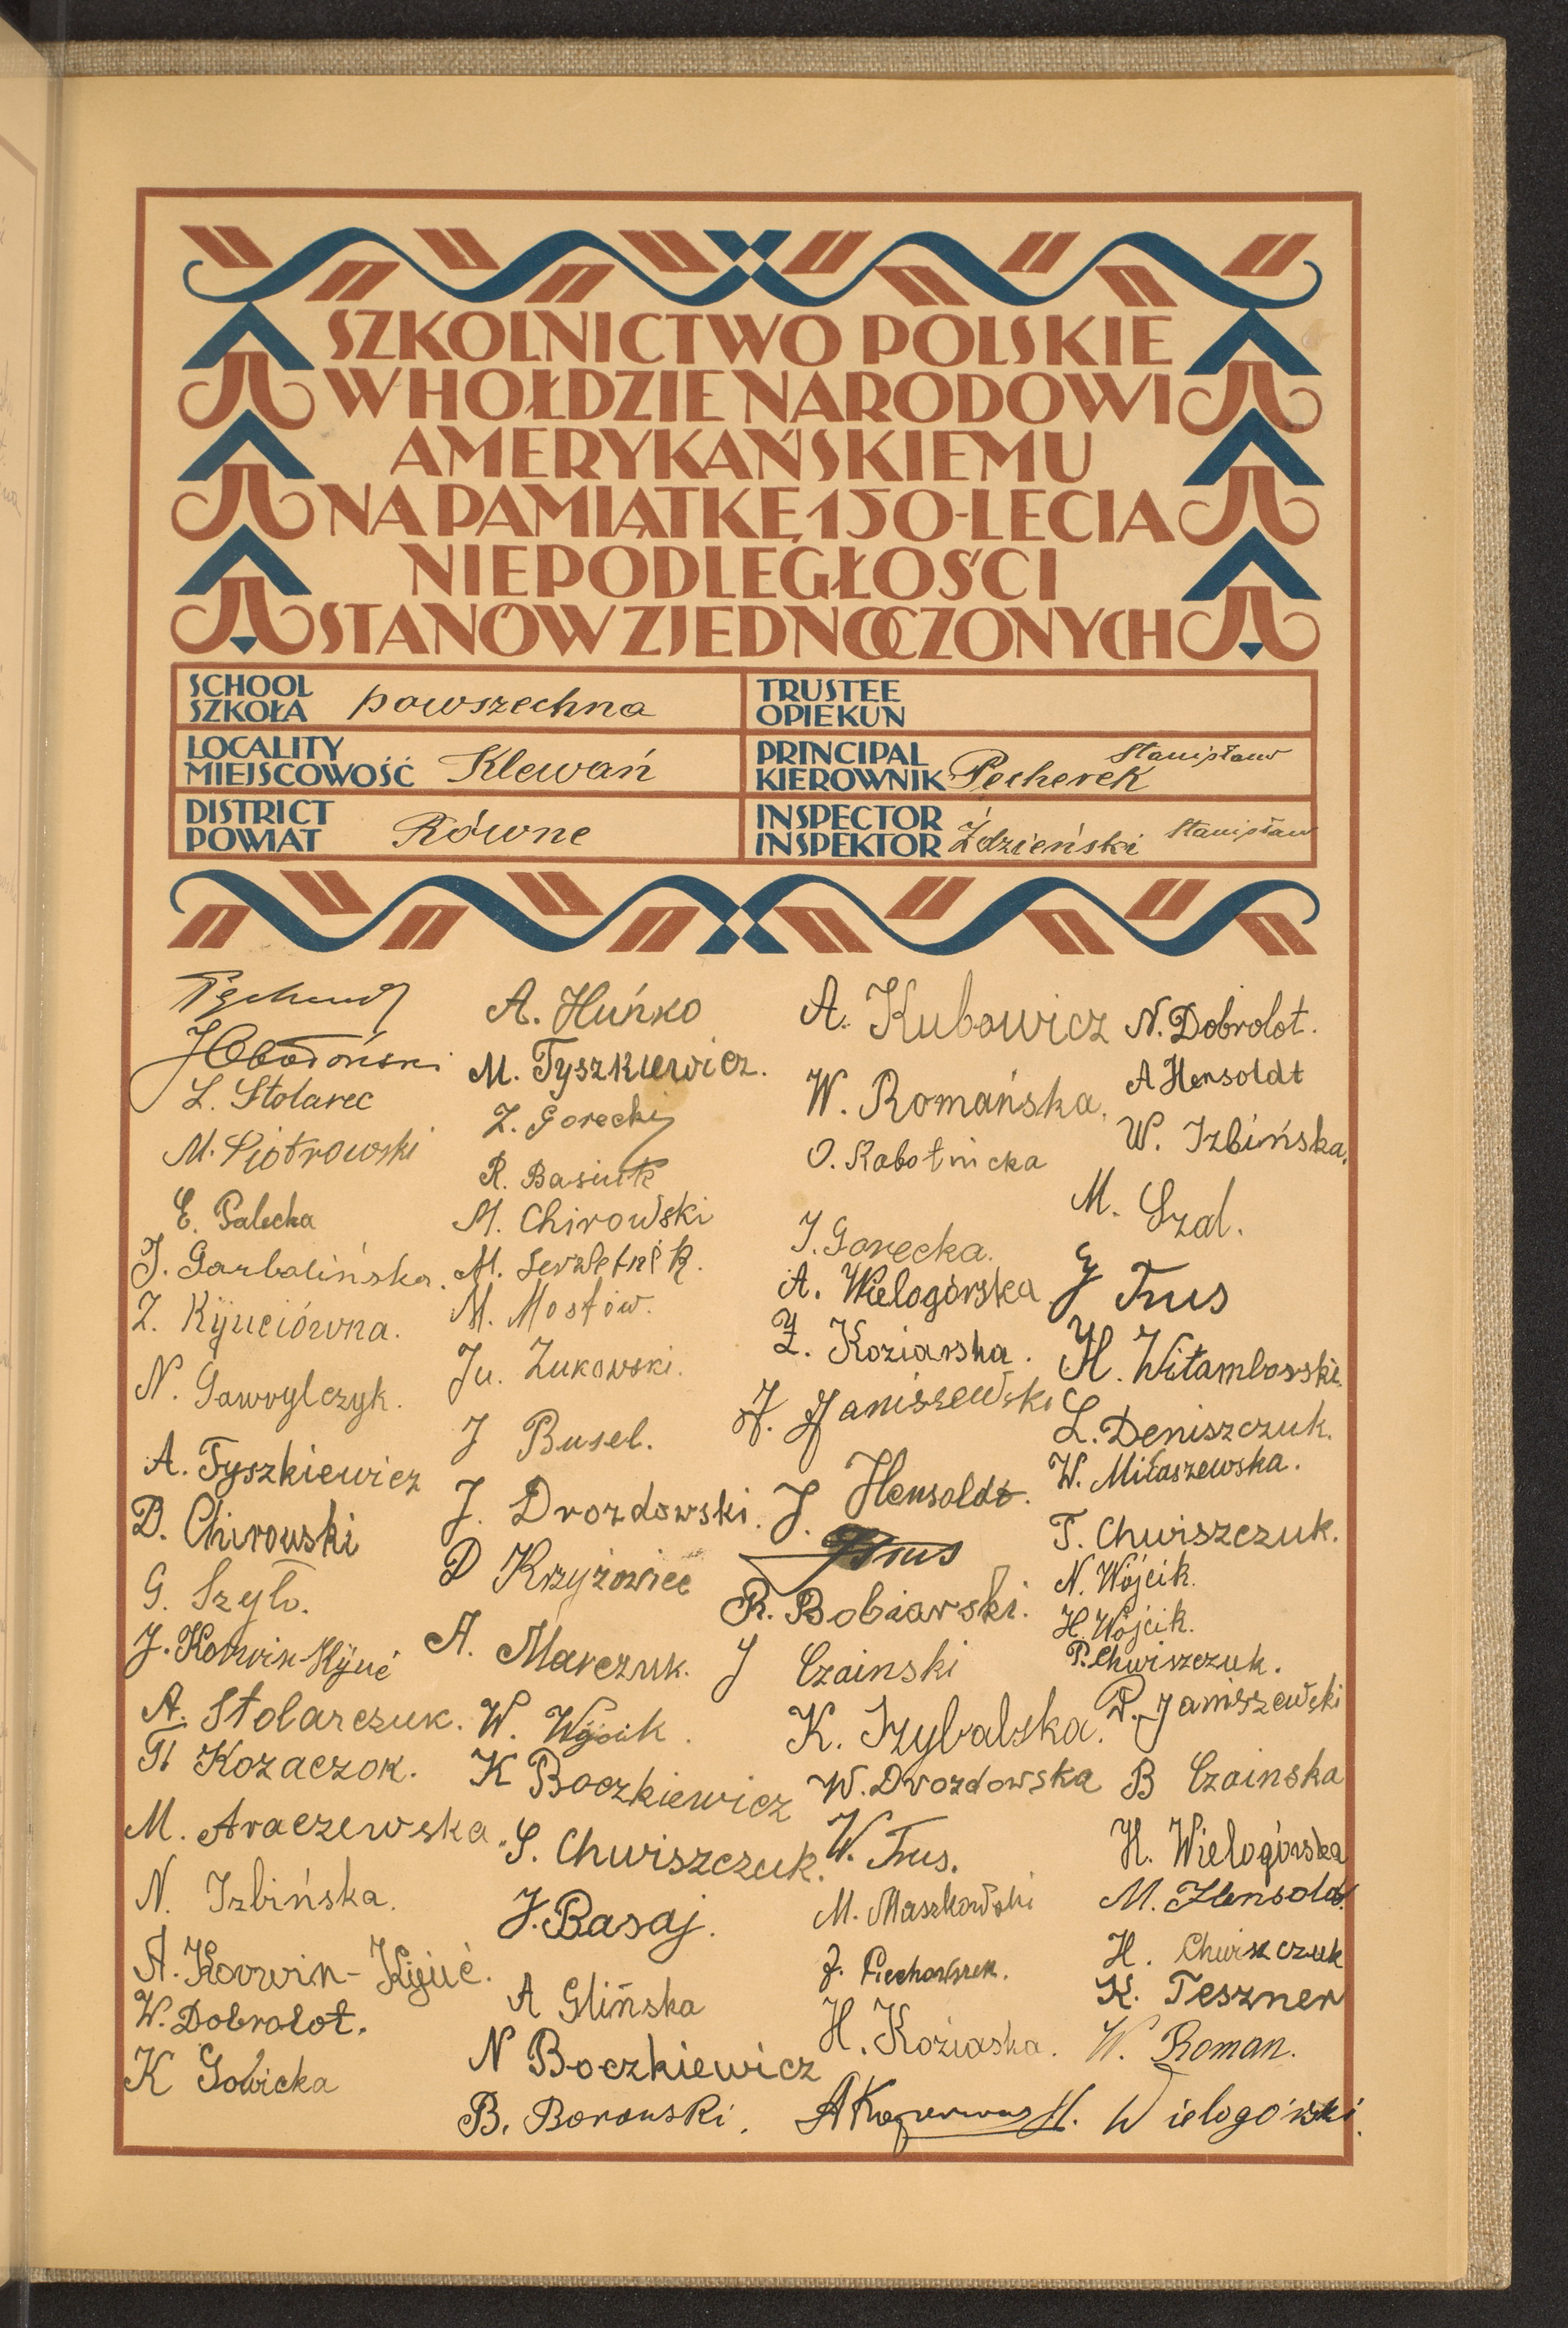 SZKOLNICTWO POLSKIE
W HOŁDZIE NARODOWI
AMERYKAŃSKIEMU
NA PAMIĄTKĘ 150-LECIA
NIEPODLEGŁOŚCI
STANÓW ZJEDNOCZONYCH
SCHOOL
SZKOŁA powszechna
TRUSTEE
OPIEKUN
LOCALITY
MIEJSCOWOŚĆ Klewań
PRINCIPAL
KIEROWNIK Pecherek Stanisław
DISTRICT
POWIAT Równe
INSPECTOR
INSPEKTOR Żdzieński Stanisław
L. Stolarec
M. Piotrowski
E. Palecka
J. Garbalińska.
Z. Kÿuciówna.
N. Gawrylczyk.
A. Tyszkiewicz
D. Chirowski
G. Szyło.
J. Korwin-Kÿuć
A. Stolarczuk.
Kozaczok.
M. Araczewska.
N. Izbińska.
A. Korwin-Kÿuć.
W. Dobrolot.
K Gowicka
A. Huńko
M. Tyszkiewicz.
Z. Gorecki
R. Basiuk
M. Chirowski
M. Serwetnik.
M. Mostów.
Ju. Żukowski.
J Busel.
J. Drozdowski.
D Krzyżowiec
A. Marczuk.
W. Wójcik.
K Boczkiewicz
S. Chwiszczuk.
J. Basaj.
A Glińska
N Boczkiewicz
B. Borowski.
A. Kubowicz
W. Romańska.
O. Rabotnicka
J. Gorecka.
A. Wielogórska
Z. Koziarska.
J. Janiszewski
J. Hensoldt.
Trus
R. Bobiarski.
J Czainski
K. Szybalska.
W. Drozdowska
W. Trus.
M. Maszkowski
J. Piechowszek.
H. Koziaska.
N. Dobrolot.
A Hensoldt
W. Izbińska.
M. Szal.
J Trus
H. Witamborski.
L. Deniszczuk.
W. Miłaszewska.
T. Chwiszczuk.
N. Wójcik.
H. Wójcik.
P. Chwiszczuk.
R. Janiszewski
B Czainska
H. Wielogórska
M. Hensoldt.
H. Chwiszczuk
K. Teszner
W. Roman.
H. Wielogórski.